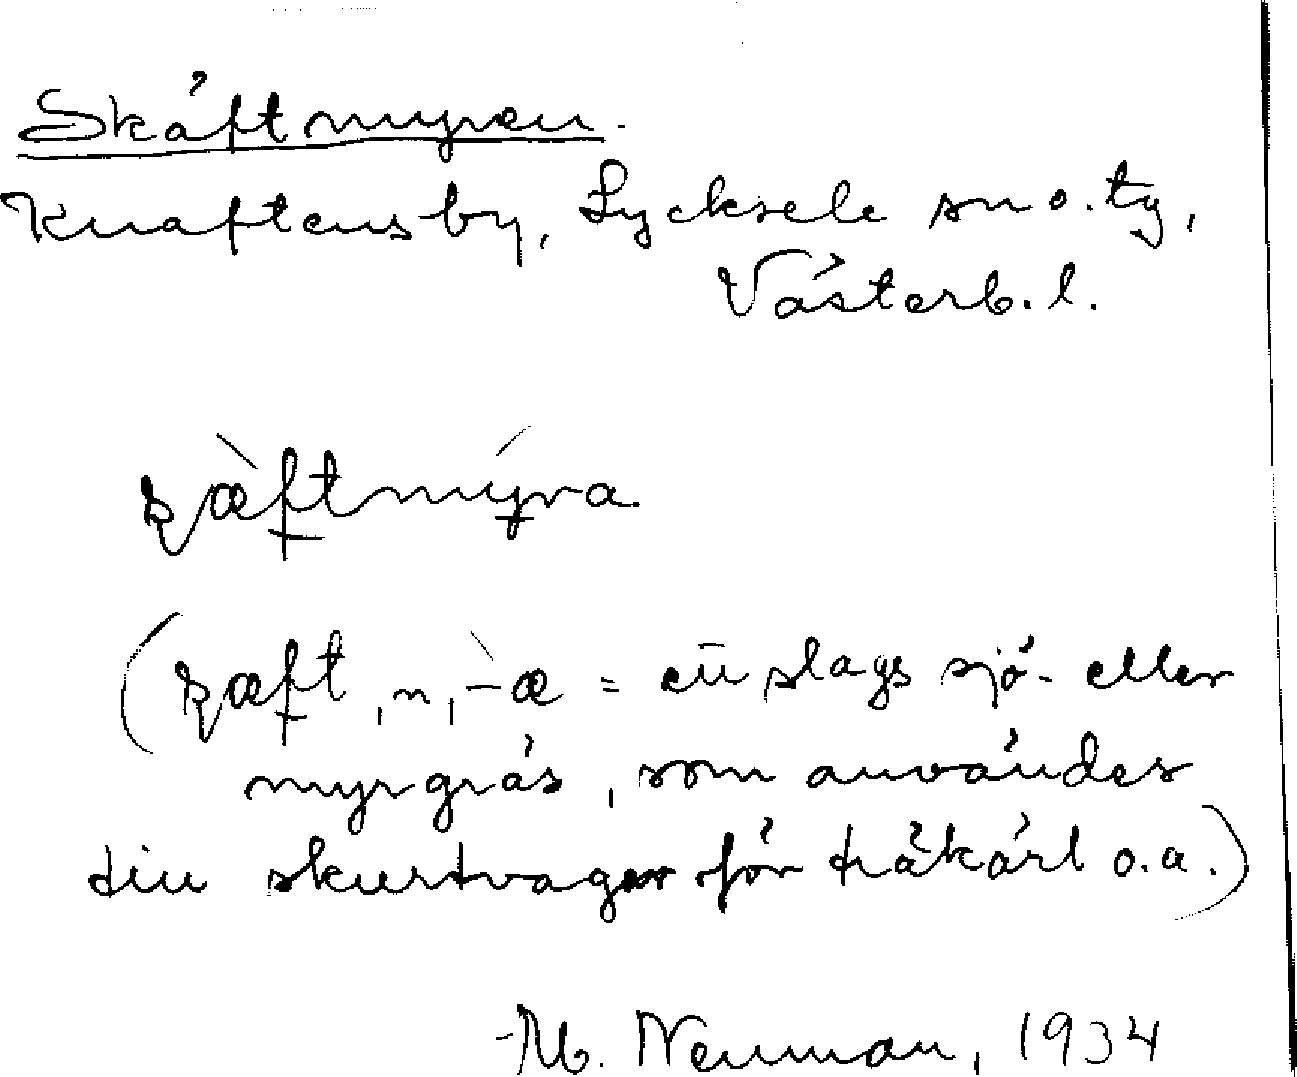 Skäftmyren.
Knaftensby, Lycksele sn o. tg,
Västerb. l.
(, n, -æ = ett slags sjö- eller
myrgräs, som användes
till för träkärl o.a.)
M. Neuman, 1934